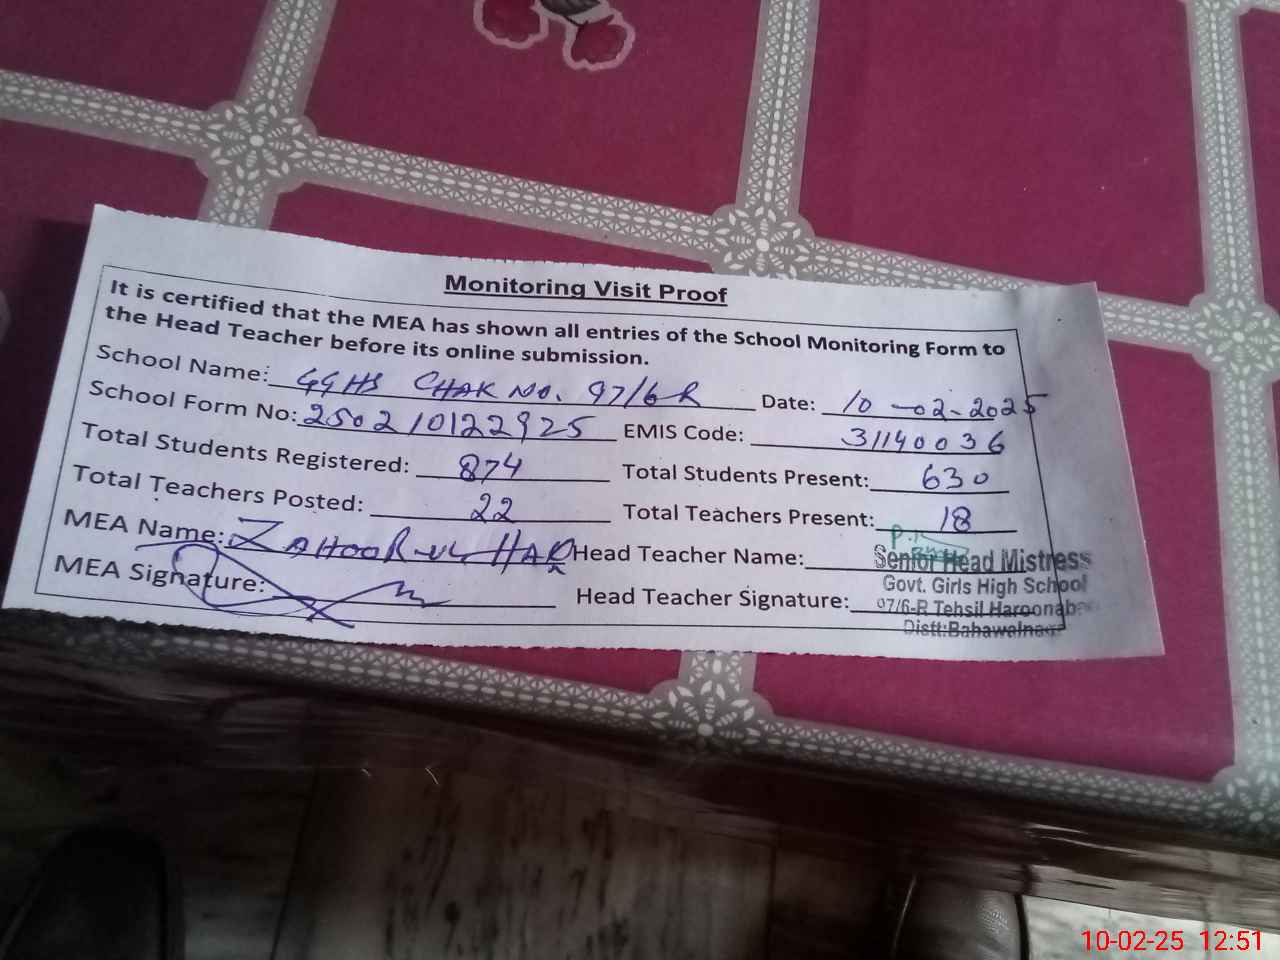 Monitoring Visit Proof
It is certified that the MEA has shown all entries of the School Monitoring Form to
the Head Teacher before its online submission.
School Name: GGHS CHAK NO. 97/6R Date: 10-02-2025
School Form No: 250210122925 EMIS Code: 31140036
Total Students Registered: 874 Total Students Present: 630
Total Teachers Posted: 22 Total Teachers Present: 18
MEA Name: ZAHOOR-UL-HAK Head Teacher Name:
MEA Signature: Head Teacher Signature:
Senior Head Mistress
Govt. Girls High School
97/6-R Tehsil Haroonabad
Distt:Bahawalnagar
10-02-25 12:51